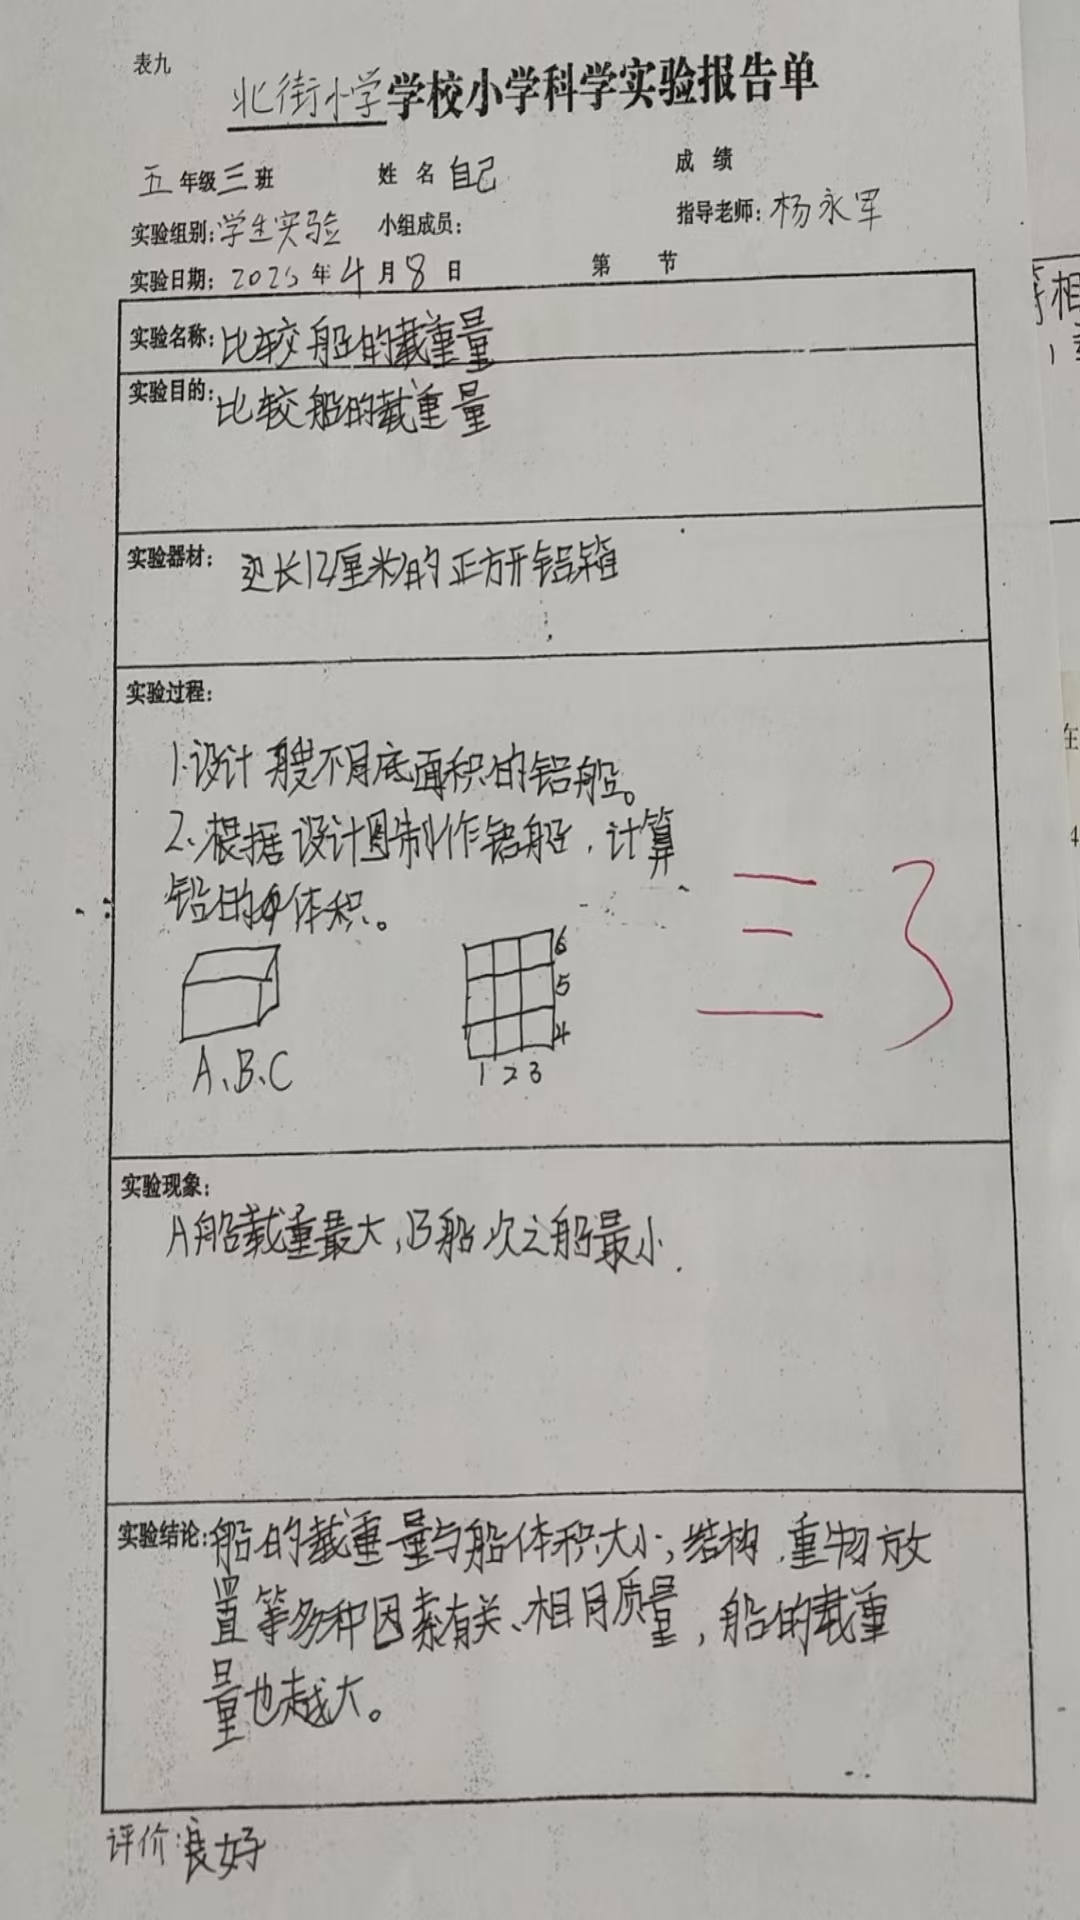 表九
北街小学学校小学科学实验报告单
五年级三班 姓名 自己 成绩
实验组别:学生实验 小组成员: 指导老师:杨永军
实验日期:2025年4月8日 第 节
实验名称:比较船的载重量
实验目的:比较船的载重量
实验器材: 边长12厘米的正方形铝箔
实验过程:
1.设计 艘不同底面积的铝船。
2.根据设计图制作铝船,计算
船的体积。
6
5
4
1 2 3
A、B、C
三 3
实验现象:
A船载重最大,B船次之船最小.
实验结论:船的载重量与船体积大小;结构、重物放
置等多种因素有关、相同质量,船的载重
量也越大。
评价:良好